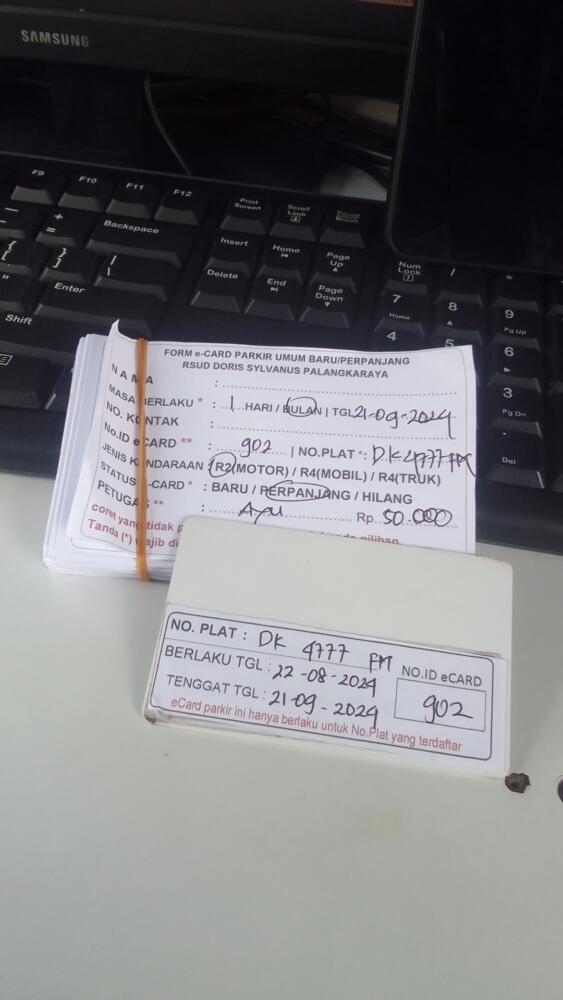 SAMSUNG
F9 F10 F11 F12 Print Screen Scroll Lock Pause Break
Backspace
Insert Home Page Up Num Lock / *
Delete End Page Down 7 Home 8 9 Pg Up
Enter
Shift
4 5 6
3 Pg Dn
Del
FORM e-CARD PARKIR UMUM BARU/PERPANJANG
RSUD DORIS SYLVANUS PALANGKARAYA
NAMA :
MASA BERLAKU * : 1 HARI / BULAN | TGL 21-09-2024
NO. KONTAK :
No.ID eCARD ** : 902 | NO.PLAT *: DK 4777 FM
JENIS KENDARAAN : R2(MOTOR) / R4(MOBIL) / R4(TRUK)
STATUS e-CARD * : BARU / PERPANJANG / HILANG
PETUGAS ** : Ayu Rp. 50.000
coret yang tidak pilihan
Tanda (*) wajib di
NO. PLAT : DK 4777 FM
BERLAKU TGL : 22-08-2024
TENGGAT TGL : 21-09-2024
NO.ID eCARD
902
eCard parkir ini hanya berlaku untuk No.Plat yang terdaftar